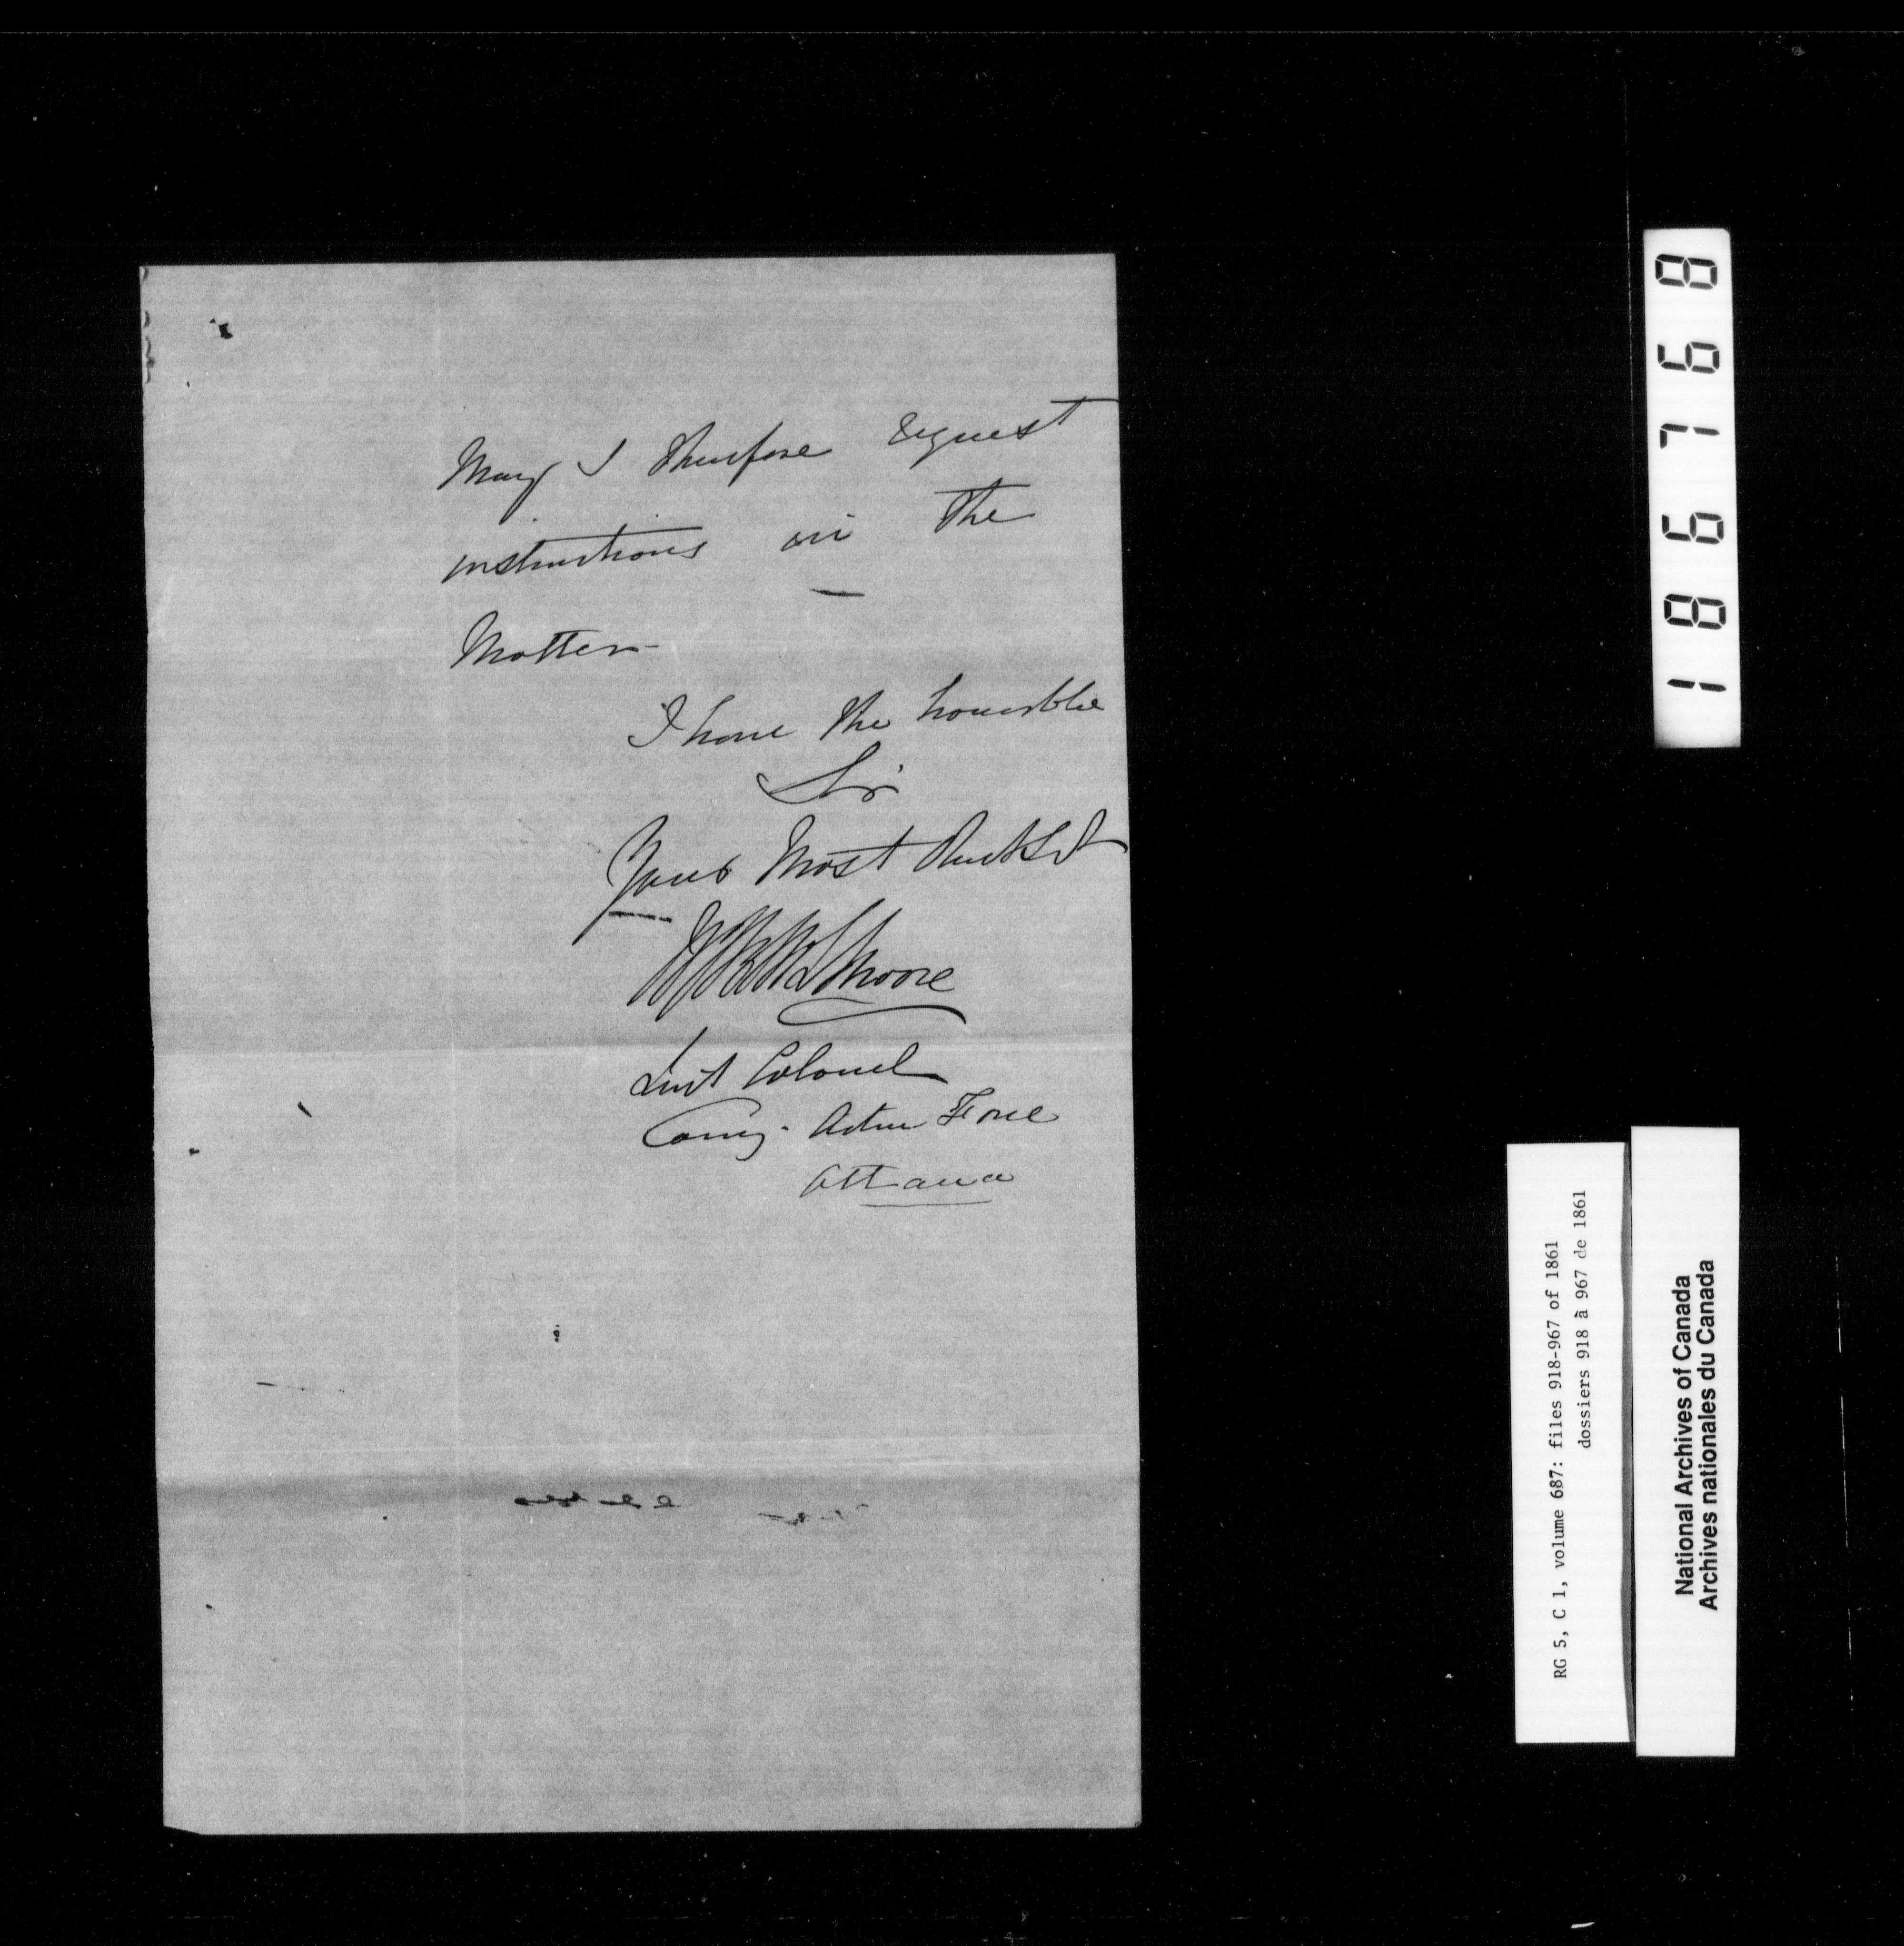 May I therefore request
instructions in the
Matter
I have the honor to be
Sir
Your Most Obedt Svt
Moore
Lieut Colonel
Comg. Active Force
Ottawa
186768
RG 5, C 1, volume 687: files 918-967 of 1861
dossiers 918 à 967 de 1861
National Archives of Canada
Archives nationales du Canada